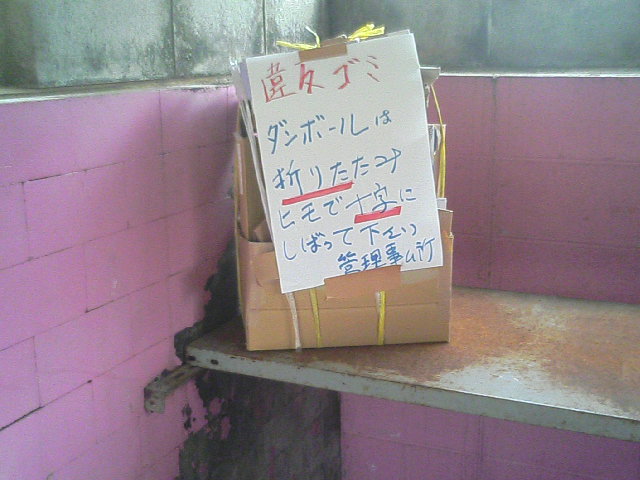 違反ゴミ
ダンボールは
折りたたみ
ヒモで十字に
しばって下さい
管理事ム所